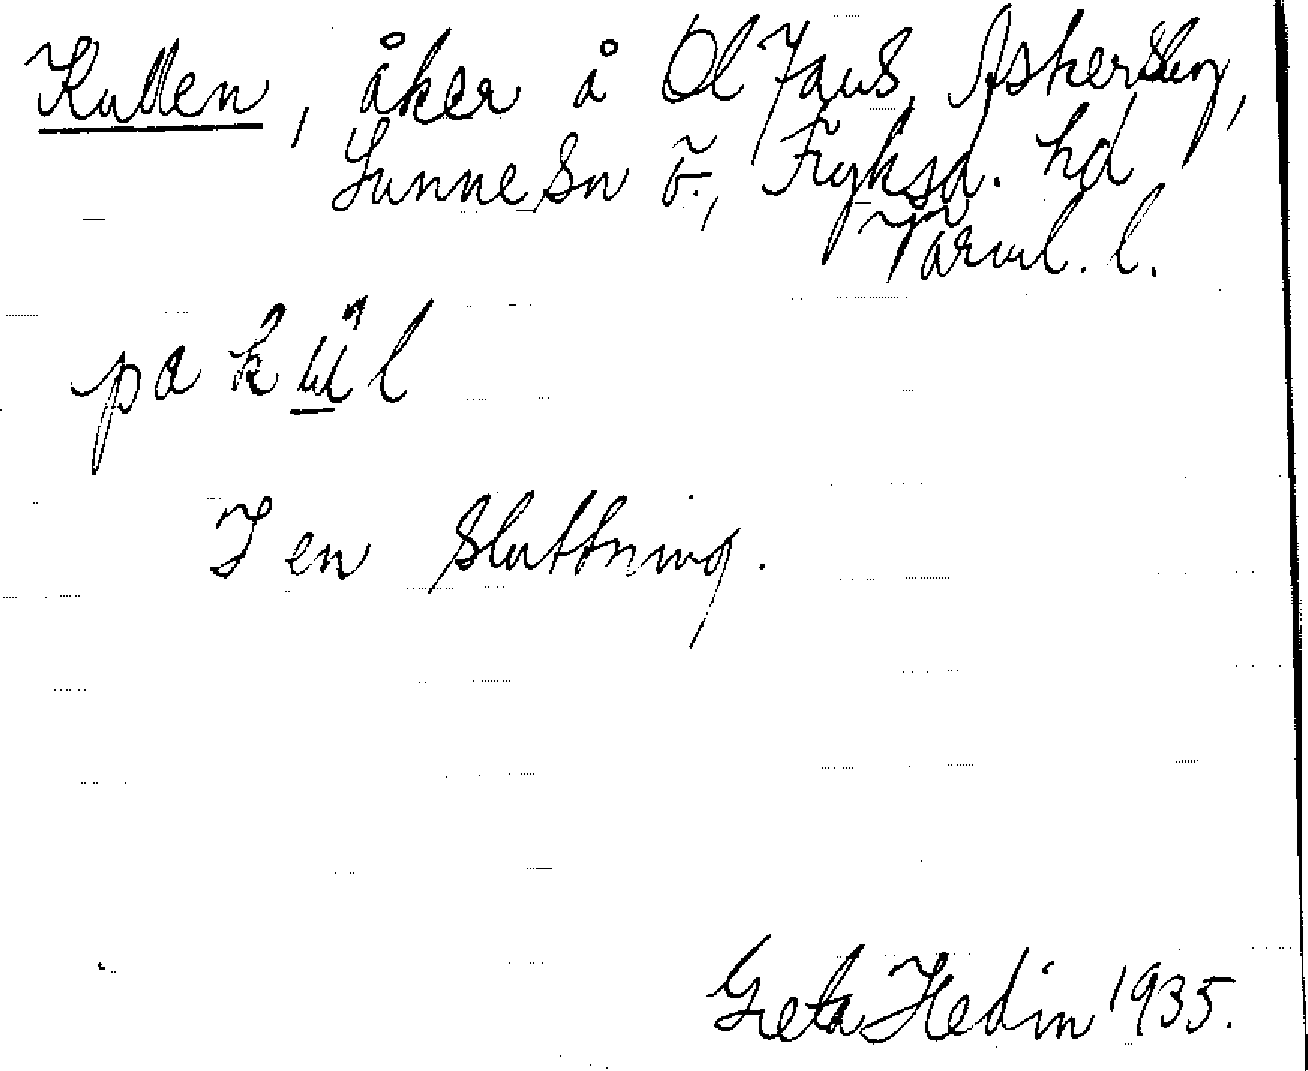 Kullen, åker å Ol Jaus, Askersby,
Sunne sn Ö., Fryksd. hd
Värml. l.
pa kųl
I en sluttning.
Greta Hedin 1935.